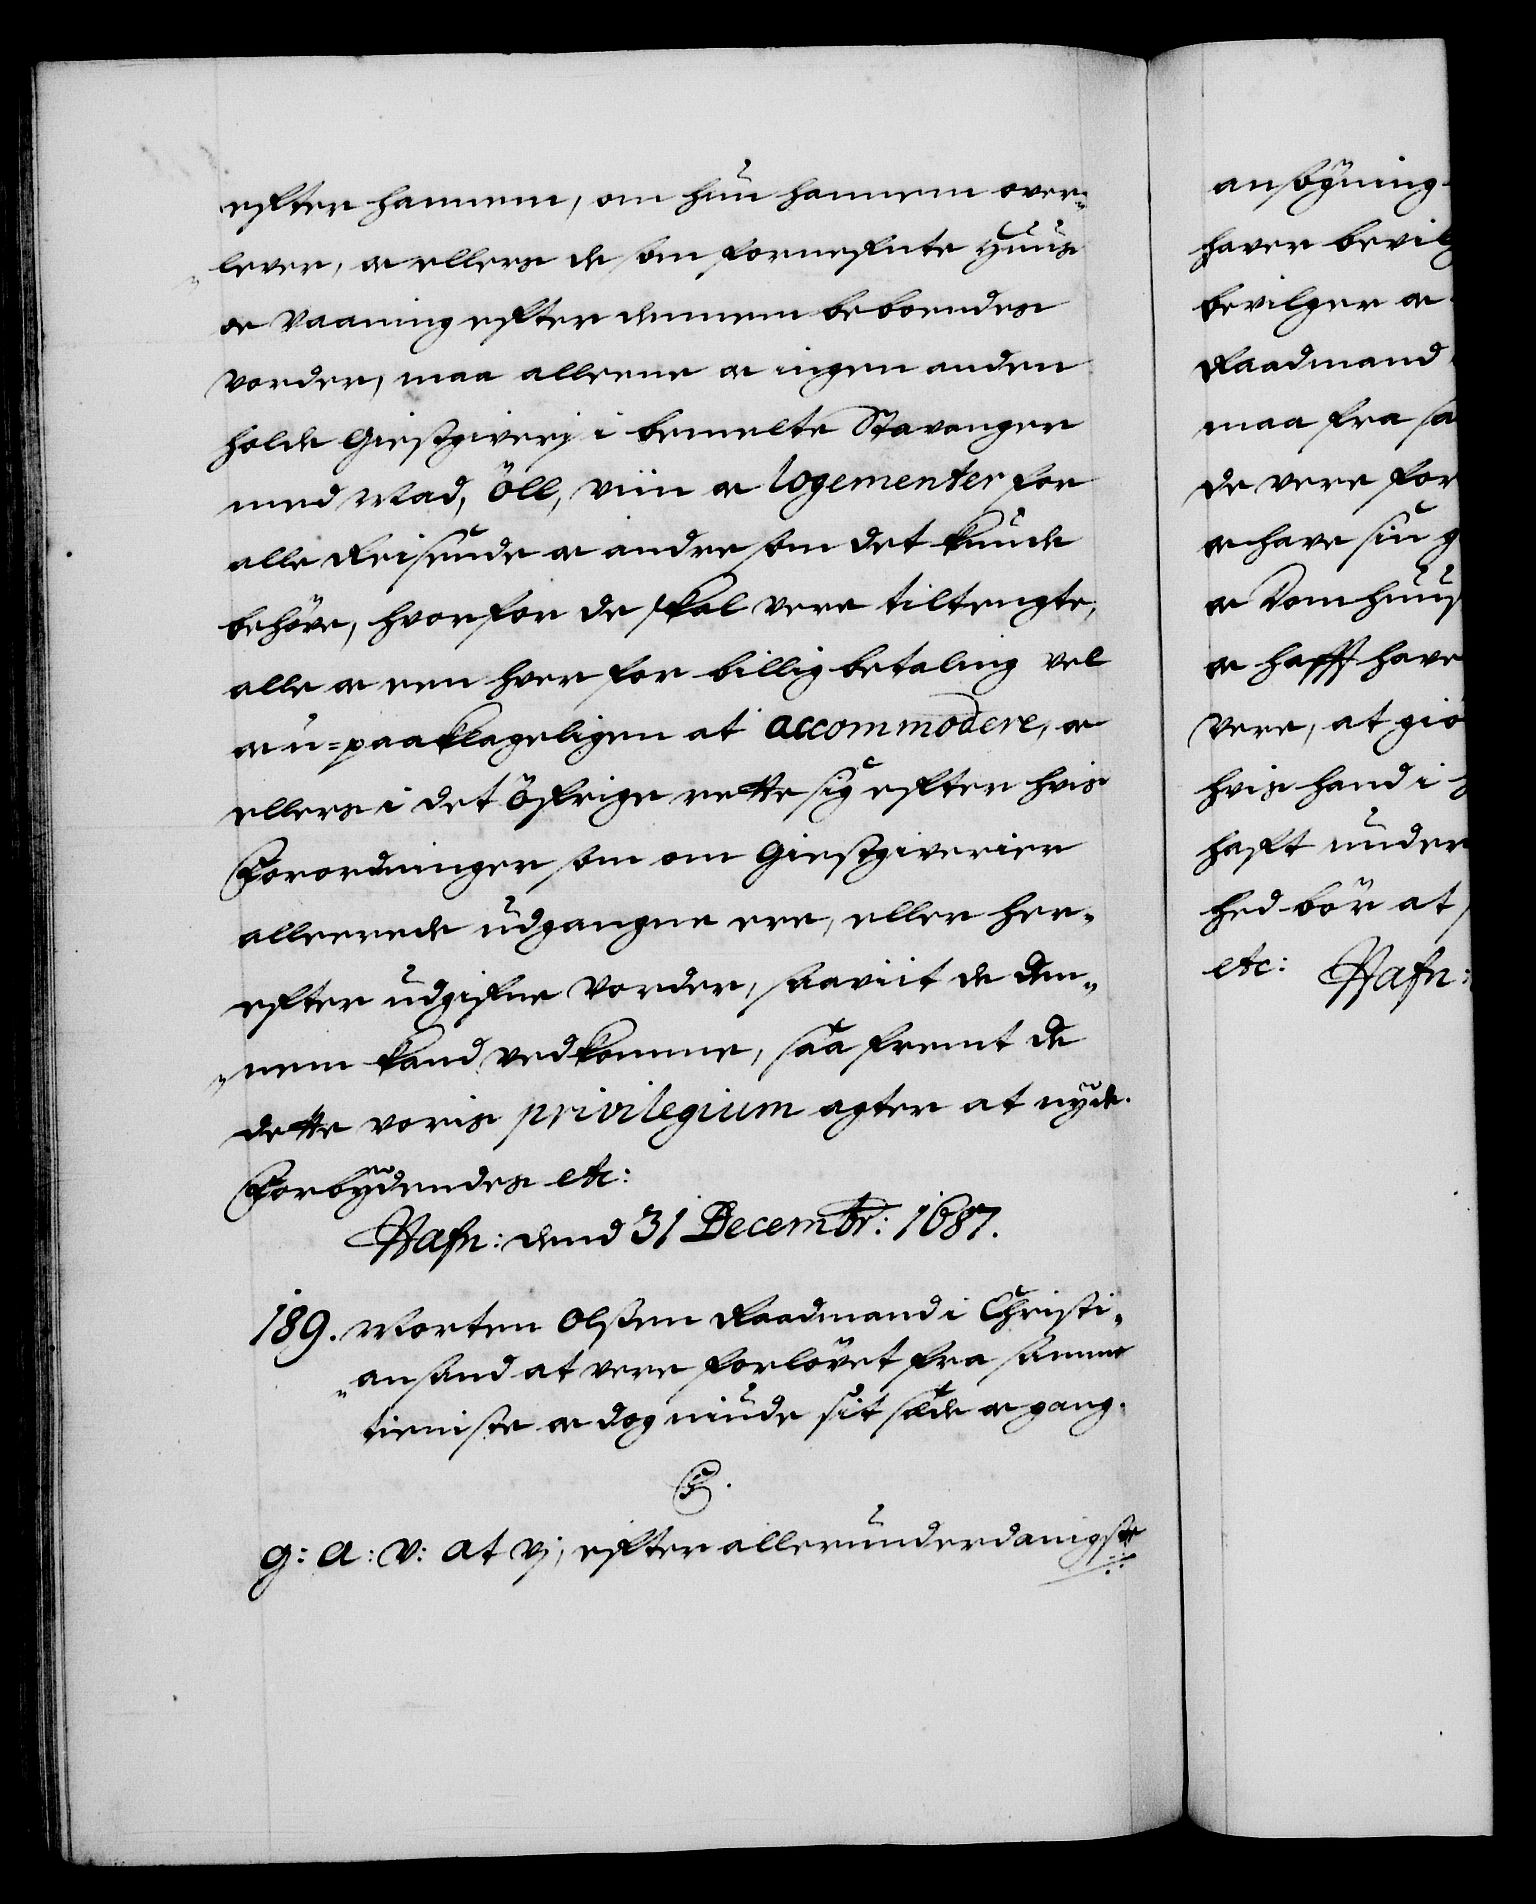 efter hannem, om hun hannem over-
lever, oc ellers de som fornefnte Huus
oc Vaaning efter dennem beboendes
vorder, maa alleene oc ingen anden
holde Giestgiverj i bemelte Stavanger
med Mad, öll, viin oc logementer for
alle Reisende oc andre som det kunde
behöve, hvorfor de skal vere tiltengte,
alle oc een hver for billig betaling vel
oc u-paaklageligen at accommodere, oc
ellers i det öfrige rette sig efter hvis
Forordninger som om Giestgiverier
alleerede udgangne ere, eller her-
efter udgifne vorder, saaviit de den-
nem kand vedkomme, saa fremt de
dette voris privilegium agter at nyde.
Forbydendes etc:
Hafn: dend 31 Decembr: 1687.
189. Morten Olssen Raadmand i Christi-
ansand at vere forlövet fra samme
tieniste oc dog niude sit sæde oc gang.
C5.
G: A: V: at Vj, efter allerunderdanigste
ansögning
haver bevilg
bevilger oc
Raadmand
maa fra sa
de vere for
oc have sin g
oc Domhuus
oc hafft have
vere, at giö
hvis hand i
hafft under
hed bör at
etc: Hafn: